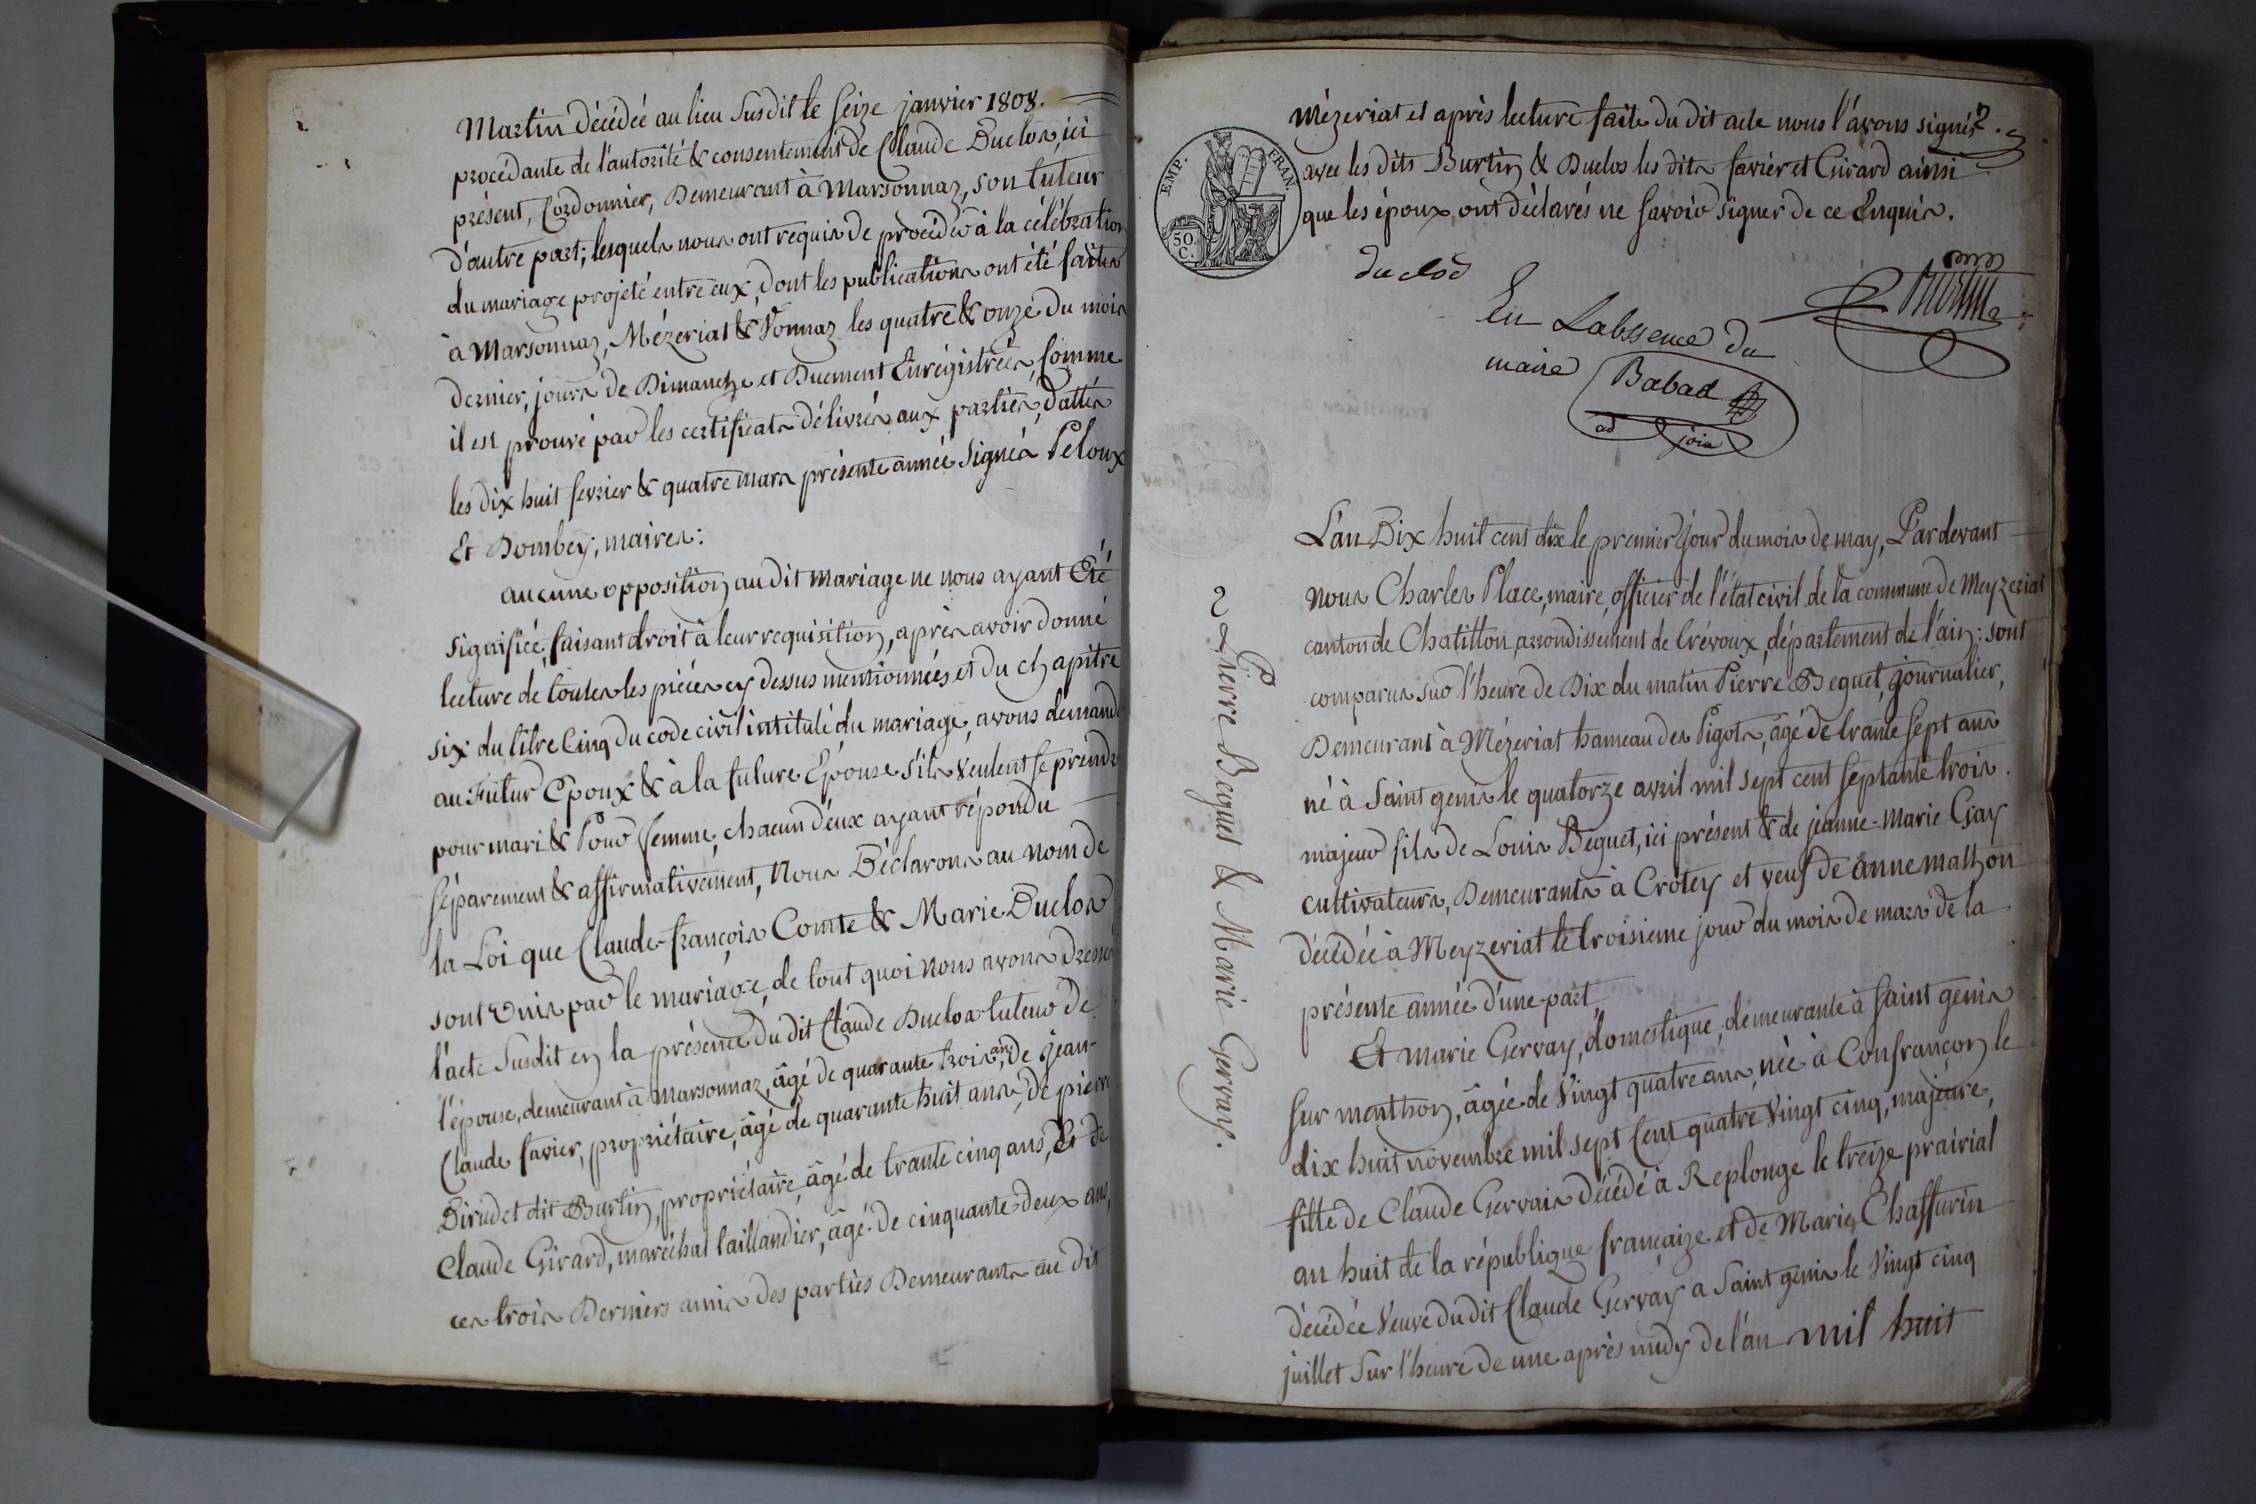 Martin décédée au lieu susdit le seize janvier 1808.
procédante de l'autorité & consentement de Claude Duclos, ici
présent, Cordonnier, Demeurant à Marsonnaz, son tuteur
d'autre part; lesquels nous ont requis de procéder à la célébration
du mariage projeté entre eux, dont les publications ont été faites
à Marsonnaz, Mézeriat & Vonnaz les quatre & onze du mois
dernier, jours de Dimanche et Duement Enrégistrées, comme
il est prouvé par les certificats délivrés aux parties, dattés
les dix huit fevrier & quatre mars présente année signés Peloux
Et Dombey, maires:
aucune opposition au dit mariage ne nous ayant Eté
signifiée, faisant droit à leur requisition, après avoir donné
lecture de toutes les pièces cy dessus mentionnées et du chapitre
six du titre Cinq du code civil intitulé du mariage, avons demandé
au Futur Epoux & à la future Epouse s'ils veulent se prendre
pour mari & Pour femme, chacun d'eux ayant répondu
séparement & affirmativement, Nous Déclarons au nom de
la Loi que Claude-françois Comte & Marie Duclos
sont Unis par le mariage, de tout quoi nous avons Dressé
l'acte susdit en la présence du dit Claude Duclos tuteur de
l'épouse, demeurant à Marsonnaz, âgé de quarante trois ans, de jean-
Claude favier, propriétaire, âgé de quarante huit ans, de pierre
Birudet dit Burtin, propriétaire, âgé de trante cinq ans, Et de
Claude Girard, maréchal taillandier, âgé de cinquante deux ans,
ces trois Derniers amis des parties Demeurants au dit
Mézeriat et après lecture faite du dit acte nous l'avons signés
avec les dits Burtin & Duclos les dits favier et Girard ainsi
que les époux, ont déclarés ne savoir signer de ce Enquis.
EMP. FRAN.
50.
C.
duclos
En Labssence du
maire Babad
ad join
2 Pierre Beguet & Marie Gervay.
L'an Dix huit cent dix le premier jour du mois de may, Pardevant
nous Charles Place, maire, officier de l'état civil de la commune de Meyzeriat
canton de Chatillon, arrondissement de Trévoux, département de l'ain: sont
comparus sur l'heure de Dix du matin Pierre Beguet, journalier,
Demeurant à Mézeriat hameau des Pigots, âgé de trante sept ans
né à Saint genis le quatorze avril mil sept cent septante trois.
majeur fils de Louis Beguet, ici présent & de jeanne-Marie Gay
cultivateurs, Demeurants à Crotey et veuf de anne mathon
décédée à Meyzeriat le troisieme jour du mois de mars de la
présente année d'une part
Et marie Gervay, domestique, demeurante à saint genis
sur menthon, âgée de Vingt quatre ans, née à Confrançon le
dix huit novembre mil sept Cent quatre Vingt cinq, majeure,
fille de Claude Gervais décédé à Replonge le treize prairial
an huit de la république françaize et de Marie Chaffurin
décédée Veuve du dit Claude Gervay a Saint genis le Vingt cinq
juillet sur l'heure de une après midy de l'an mil huit